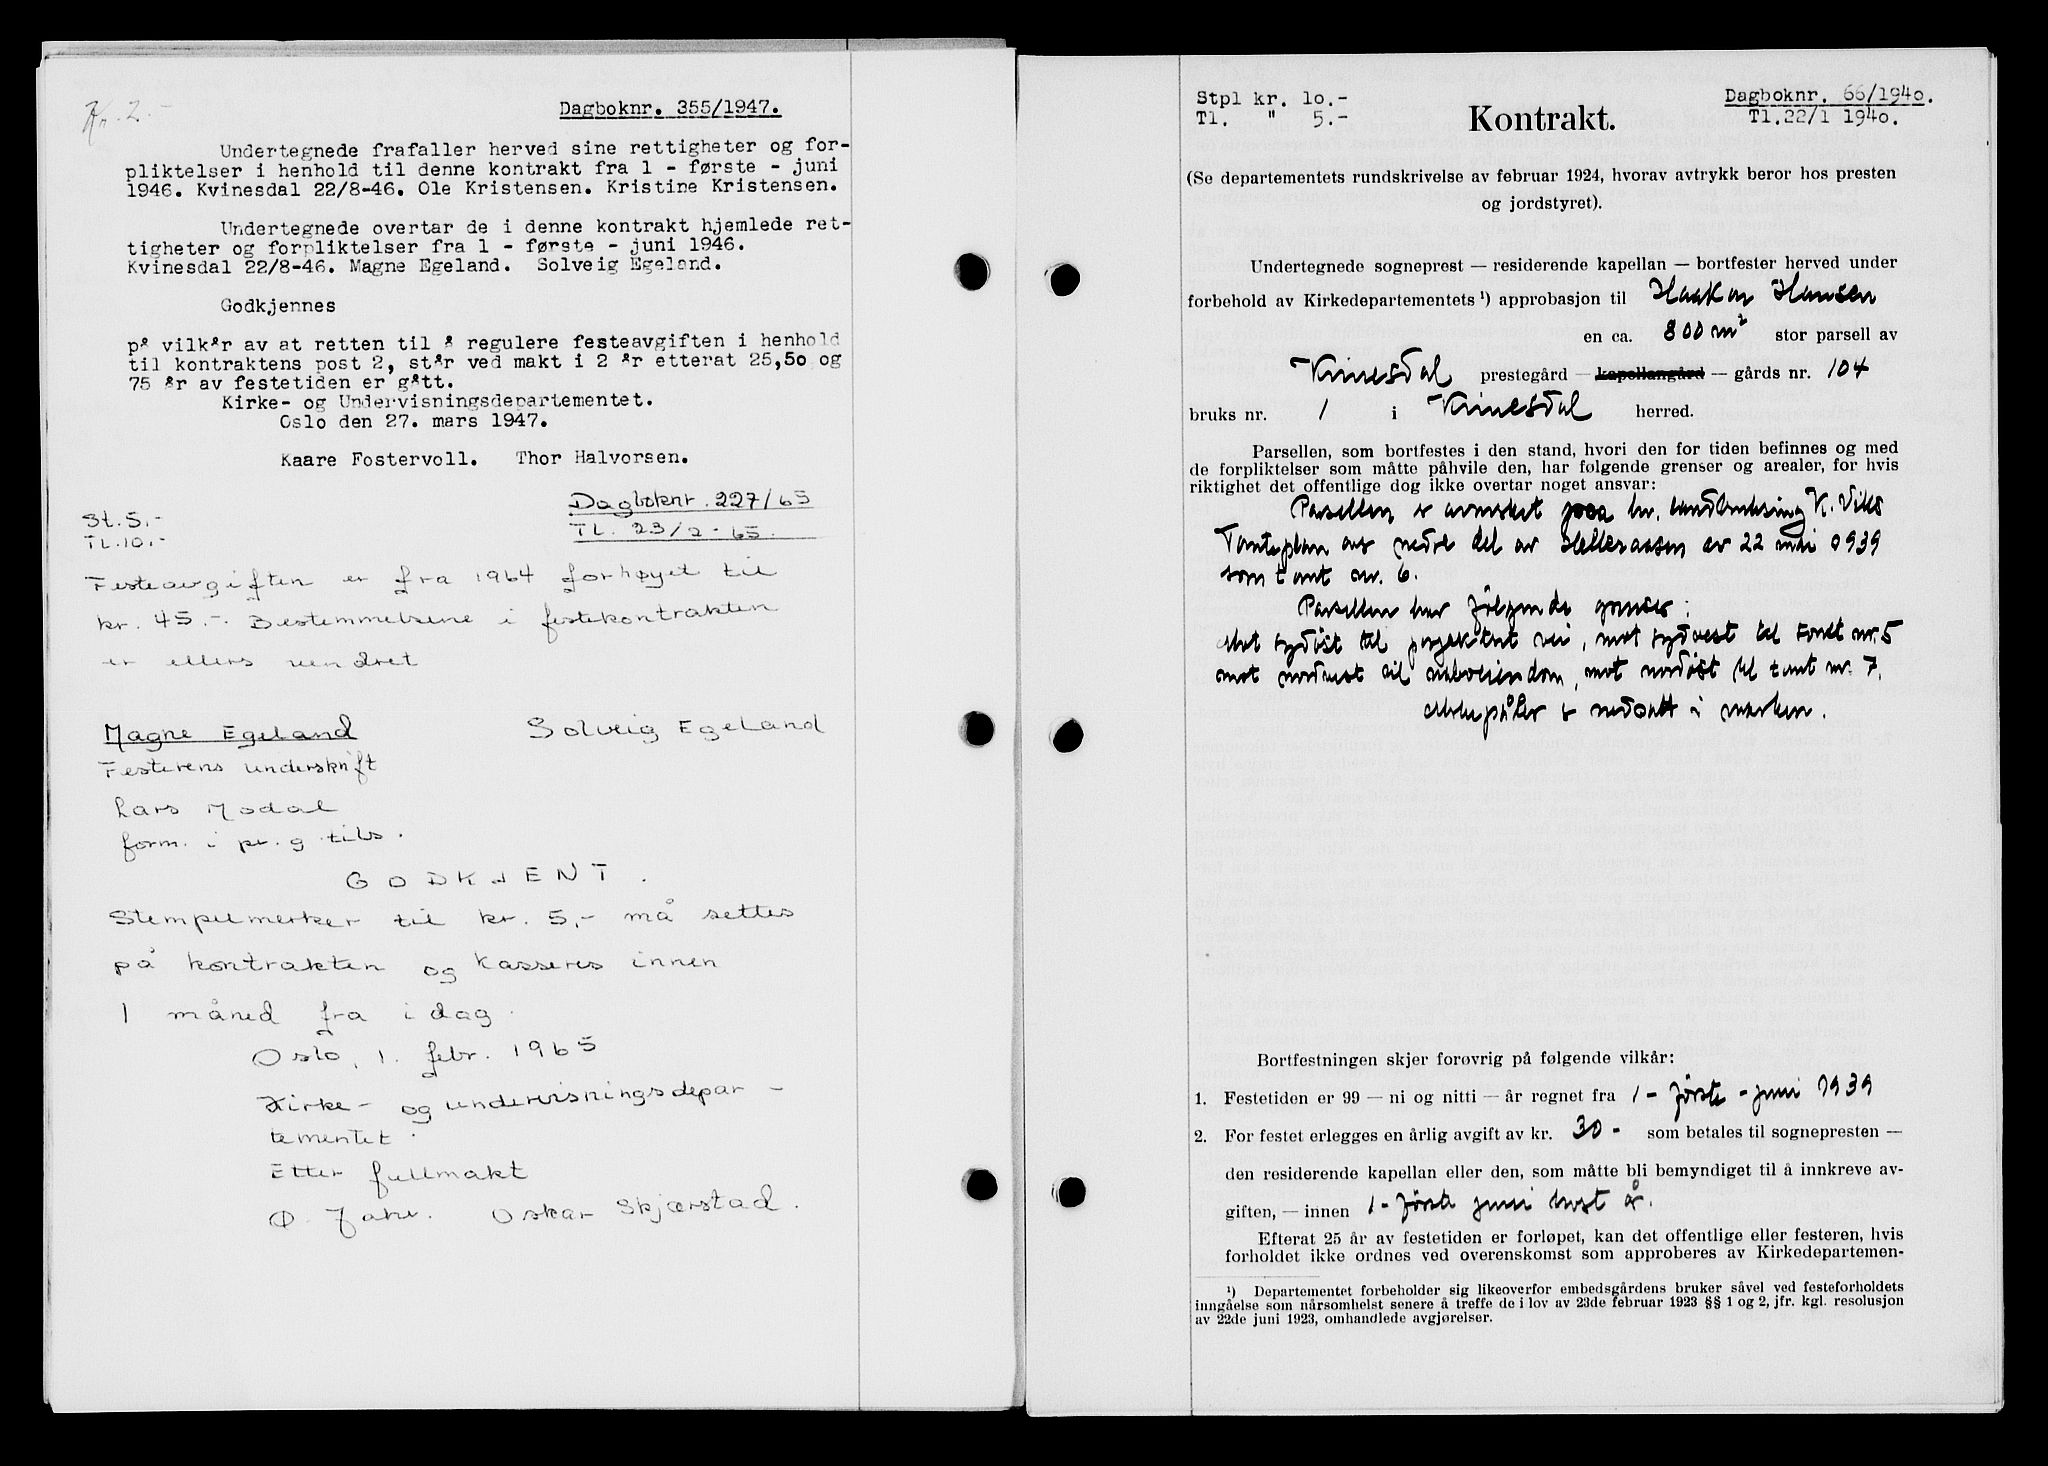 Kr. 2.-
Dagboknr. 355/1947.
Undertegnede frafaller herved sine rettigheter og for-
pliktelser i henhold til denne kontrakt fra 1 - første - juni
1946. Kvinesdal 22/8-46. Ole Kristensen. Kristine Kristensen.
Undertegnede overtar de i denne kontrakt hjemlede ret-
tigheter og forpliktelser fra 1 - første - juni 1946.
Kvinesdal 22/8-46. Magne Egeland. Solveig Egeland.
Godkjennes
på vilkår av at retten til å regulere festeavgiften i henhold
til kontraktens post 2, står ved makt i 2 år etterat 25,50 og
75 år av festetiden er gått.
Kirke- og Undervisningsdepartementet.
Oslo den 27. mars 1947.
Kaare Fostervoll. Thor Halvorsen.
Dagboknr. 227/65
St. 5.-
TL. 23/2-65.
TL. 10.-
Festeavgiften er fra 1964 forhøyet til
kr. 45.-. Bestemmelsene i festekontrakten
er ellers uendret
Magne Egeland Solveig Egeland
Festerens underskrift
Lars Modal
form. i pr. g. tils.
GODKJENT.
Stempelmerker til kr. 5,- må settes
på kontrakten og kasseres innen
1 måned fra idag.
Oslo, 1. febr. 1965
Kirke- og undervisningsdepar-
tementet.
Etter fullmakt
Ø. Oskar Skjærstad.
Stpl kr. 10.-
Tl. " 5.-
Kontrakt.
Dagboknr. 66/1940.
Tl.22/1 1940.
(Se departementets rundskrivelse av februar 1924, hvorav avtrykk beror hos presten
og jordstyret).
Undertegnede sogneprest — residerende kapellan — bortfester herved under
forbehold av Kirkedepartementets ¹) approbasjon til Haakon Hansen
en ca. 800 m² stor parsell av
Kvinesdal prestegård — kapellangård — gårds nr. 104
bruks nr. 1 i Kvinesdal herred.
Parsellen, som bortfestes i den stand, hvori den for tiden befinnes og med
de forpliktelser som måtte påhvile den, har følgende grenser og arealer, for hvis
riktighet det offentlige dog ikke overtar noget ansvar:
Parsellen er avmerket paa hr. landbruksing K. Viks
Tomteplan over nedre del av Helleraasen av 22 mai 1939
som tomt nr. 6.
Parsellen har følgende grenser:
Mot sydøst til prosjektert vei, mot sydvest til tomt nr. 5
mot nordvest til naboeiendom, mot nordøst til tomt nr. 7.
Merkepåler er nedsatt i marken.
Bortfestningen skjer forøvrig på følgende vilkår:
1. Festetiden er 99 — ni og nitti — år regnet fra 1 - første - juni 1939
2. For festet erlegges en årlig avgift av kr. 30 - som betales til sognepresten —
den residerende kapellan eller den, som måtte bli bemyndiget til å innkreve av-
giften, — innen 1 - første juni hvert år.
Efterat 25 år av festetiden er forløpet, kan det offentlige eller festeren, hvis
forholdet ikke ordnes ved overenskomst som approberes av Kirkedepartemen-
¹) Departementet forbeholder sig likeoverfor embedsgårdens bruker såvel ved festeforholdets
inngåelse som nårsomhelst senere å treffe de i lov av 23de februar 1923 §§ 1 og 2, jfr. kgl. resolusjon
av 22de juni 1923, omhandlede avgjørelser.